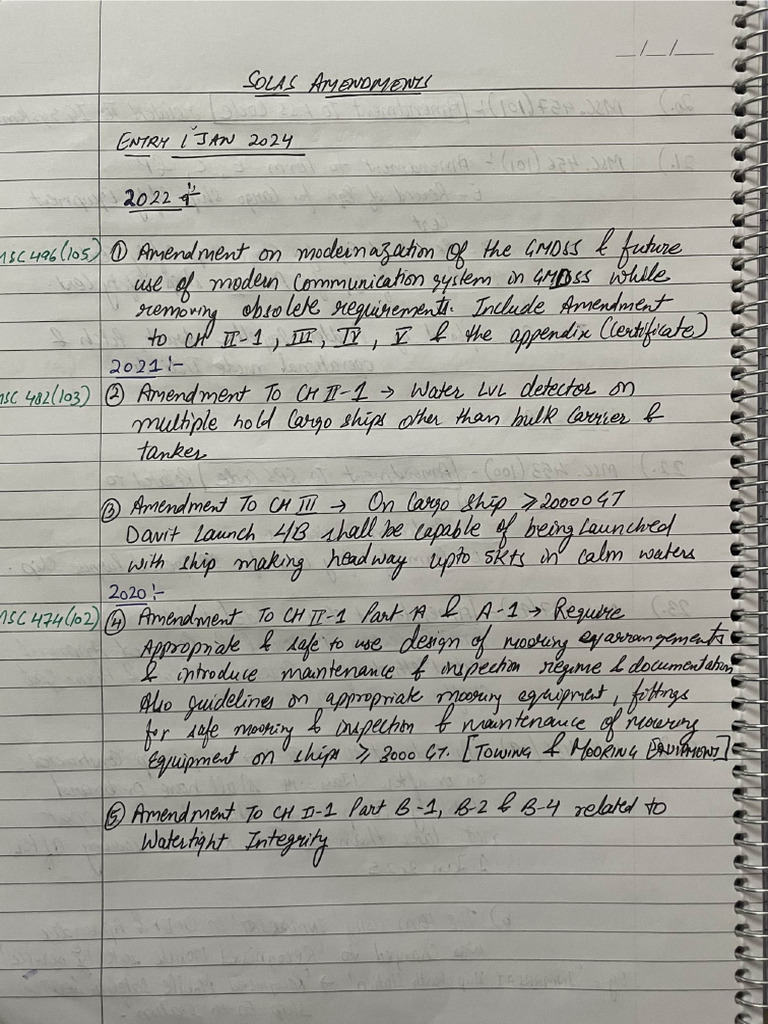 __/__/____
SOLAS AMENDMENTS
ENTRY 1st JAN 2024
2022 :-
MSC 496(105) ① Amendment on modernazation of the GMDSS & future
use of modern communication system in GMDSS while
removing obsolete requirements. Include Amendment
to CH II-1, III, IV, V & the appendix (Certificate)
2021:-
MSC 482(103) ② Amendment To CH II-1 → Water LVL detector on
multiple hold Cargo ships other than bulk carrier &
tanker
③ Amendment To CH III → On Cargo ship ≥ 20000 GT
Davit Launch L/B shall be capable of being Launched
with ship making headway upto 5kts in calm waters
2020:-
MSC 474(102) ④ Amendment To CH II-1 Part A & A-1 → Require
Appropriate & safe to use design of mooring arrangements
& introduce maintenance & inspection regime & documentation
Also guidelines on appropriate mooring equipment, fittings
for safe mooring & inspection & maintenance of mooring
Equipment on ships ≥ 3000 GT. [TOWING & MOORING EQUIPMENT]
⑤ Amendment To CH II-1 Part B-1, B-2 & B-4 related to
Watertight Integrity